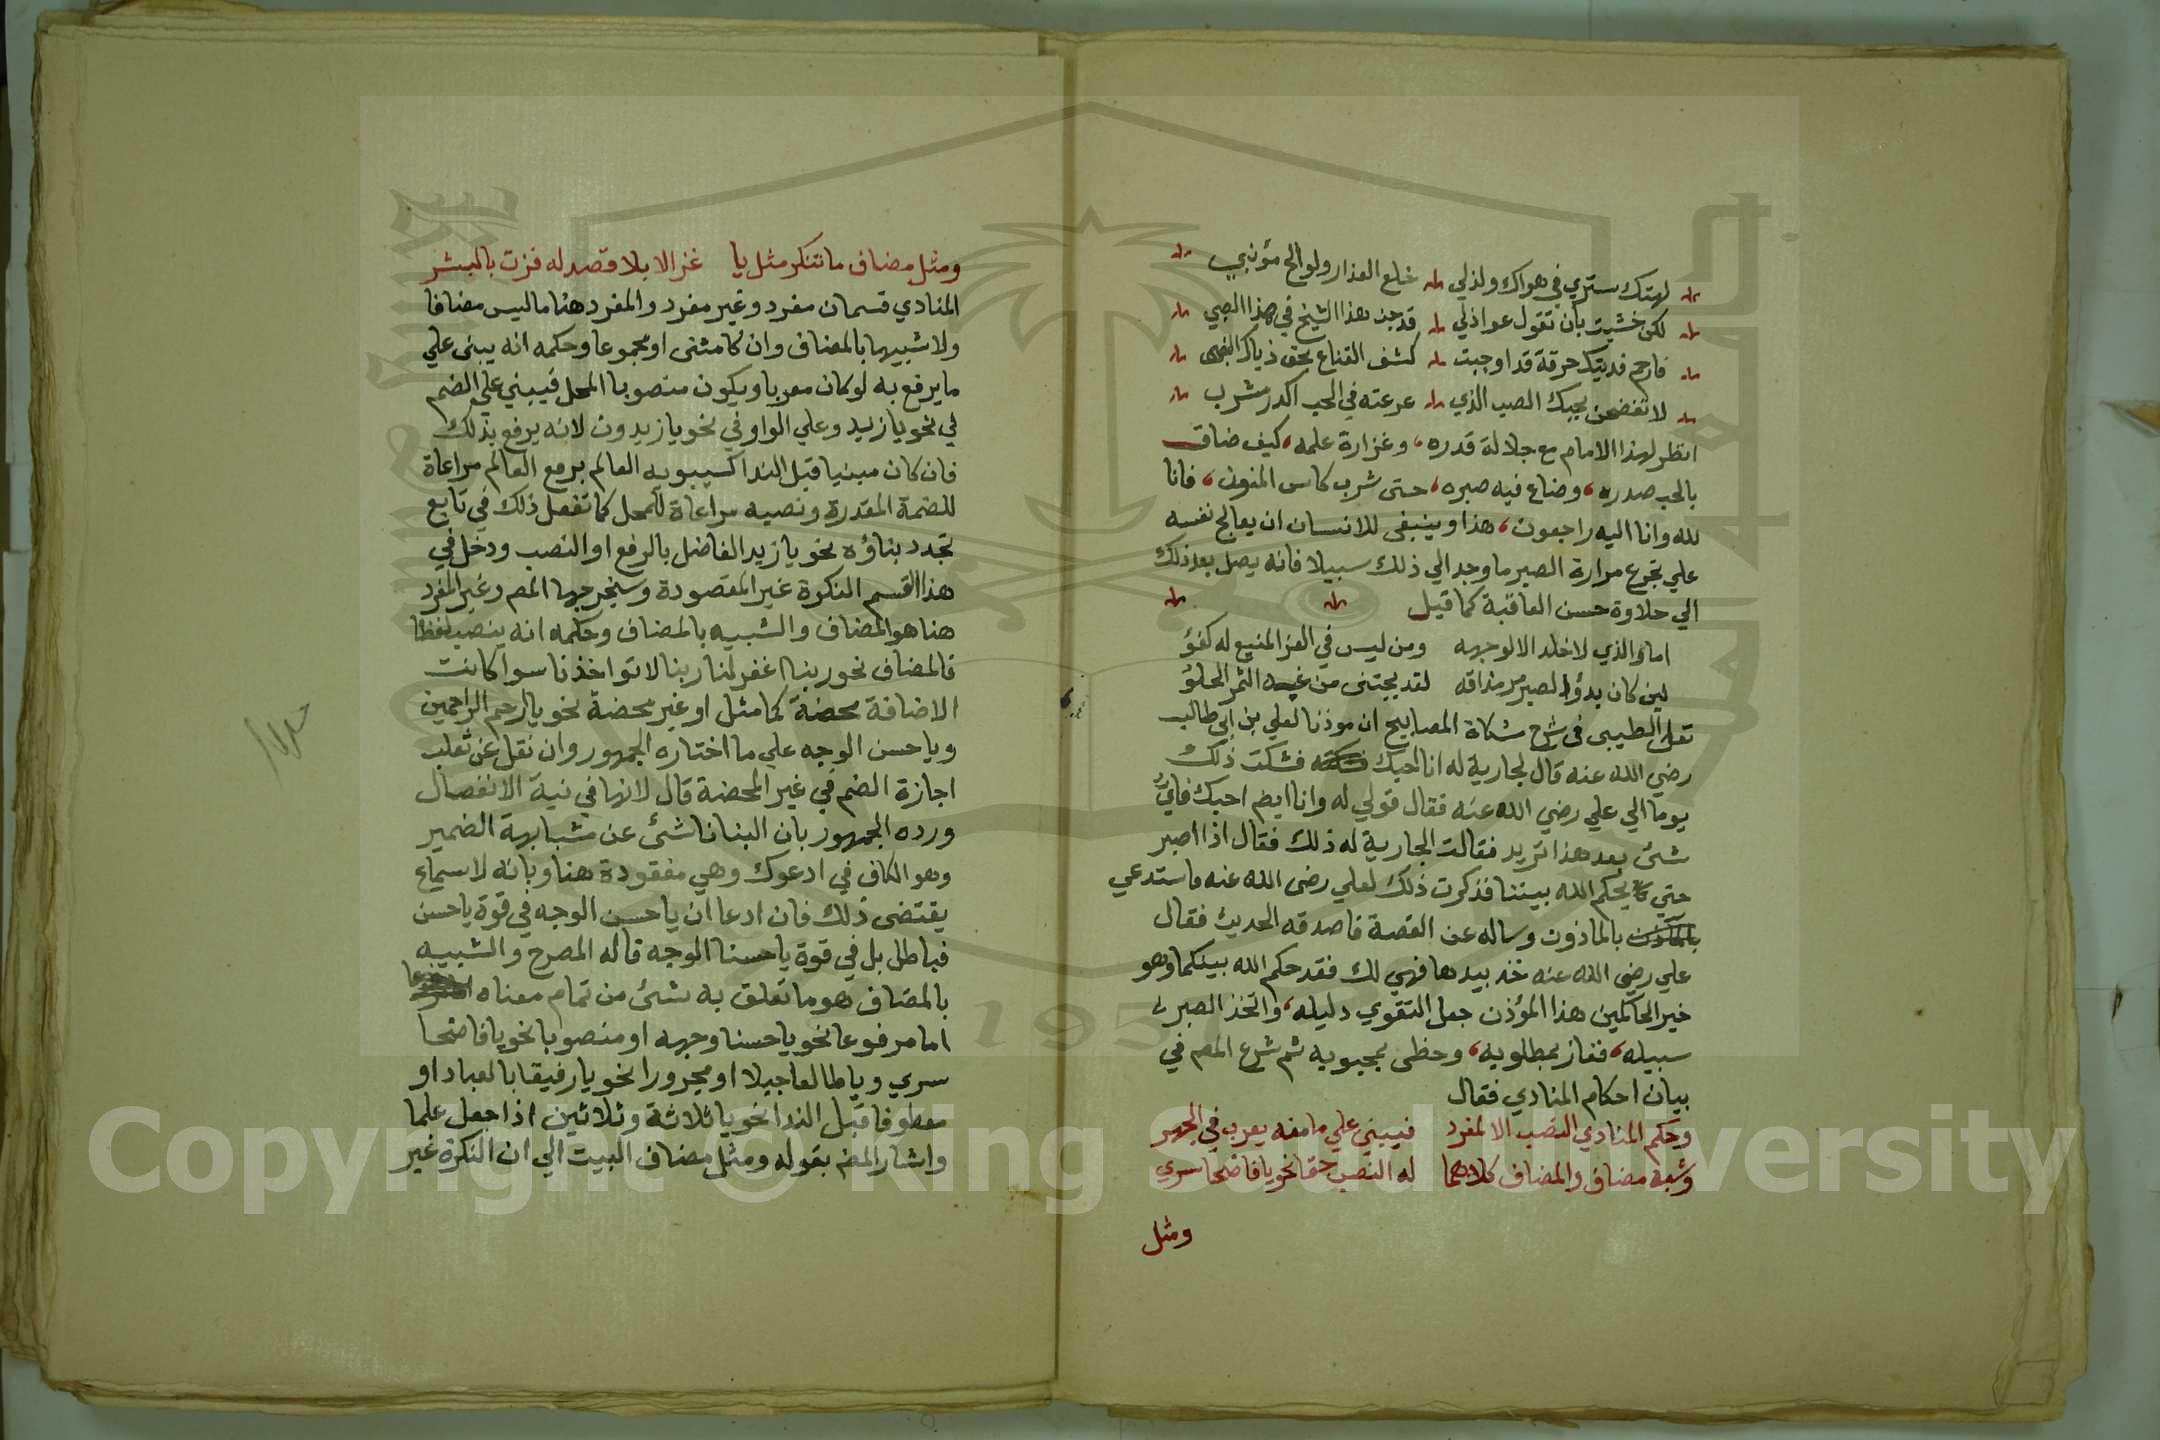 لهتك ستري في هواك ولذلي خلع العذار ولو الح مؤنبي
لكن خشيت بأن تقول عواذلي قد جن هذا الشيخ في هذا الصبي
فارحم فديتك حرقة قد اوجبت كشف القناع بحق ذياك
لا تفضحن بحبك الصب الذي عرعته في الحب اكدر مشرب
انظر لهذا الامام مع جلالة قدره، وغزارة علمه، كيف ضاق
بالحب صدره، وضاع فيه صبره، حتى شرب كاس المنون، فانا
لله وانا اليه راجعون، هذا وينبغي للانسان ان يعالج نفسه
علي تجرع مرارة الصبر ما وجد الي ذلك سبيلا فانه يصل بعد ذلك
الي حلاوة حسن العاقبة كما قيل
اما والذي لا خلد الا لوجهه ومن ليس في العز المنيع له كفؤ
لين كان بدؤ الصبر مر مذاقه لقد يجتنى من غبه الثمر الحلؤ
نقل الطيبي في شرح مشكاة المصابيح ان موذنا لعلي بن ابي طالب
رضي الله عنه قال لجارية له انا احبك فشكت ذلك
يوما الي علي رضي الله عنه فقال قولي له وانا ايضم احبك فاي
شئ بعد هذا تريد فقالت الجارية له ذلك فقال اذا اصبر
حتي يحكم الله بيننا فذكرت ذلك لعلي رضى الله عنه فاستدعي
بالماذون وساله عن القصة فاصدقه الحديث فقال
علي رضي الله عنه خذ بيدها فهي لك فقد حكم الله بينكما وهو
خير الحاكمين هذا المؤذن جعل التقوي دليله، واتخذ الصبر
سبيله، ففاز بمطلوبه، وحظى بمحبوبه ثم شرع المصم في
بيان احكام المنادي فقال
وحكم المنادي النصب الا لمفرد فيبني علي ما منه يعرب في الجهر
وشبه مضاف والمضاف كلاهما له النصب حقا نحو يا فاضحا سري
ومثل
ومثل مضاف ما تنكر مثل يا غزالا بلا قصد له فزت بالبشر
المنادي قسمان مفرد وغير مفرد والمفرد هنا ما ليس مضافا
ولا شبيها بالمضاف وان كا مثنى او مجموعا وحكمه انه يبنى علي
ما يرفع به لو كان معربا ويكون منصوبا المحل فيبني علي الضم
في نحو يا زيد وعلي الواو في نحو يا زيدون لانه يرفع بذلك
فان كان مبنيا قبل الندا كسيبويه العالم برفع العالم مراعاة
للضمة المقدرة ونصبه مراعاة للمحل كما تفعل ذلك في تابع
تجدد بناؤه نحو يا زيد الفاضل بالرفع او النصب ودخل في
هذا القسم النكرة غير المقصودة وسيخرجها المصم وغير المفرد
هنا هو المضاف والشبيه بالمضاف وحكمه انه ينصب لفظا
فالمضاف نحو ربنا اغفر لنا ربنا لا تواخذنا سوا كانت
الاضافة محضة كما مثل او غير محضة نحو يا ارحم الراحمين
ويا حسن الوجه علي ما اختاره الجمهور وان نقل عن ثعلب
اجازة الضم في غير المحضة قال لانها في نية الانفصال
ورده الجمهور بان البنا ناشئ عن مشابهة الضمير
وهو الكاف في ادعوك وهي مفقودة هنا وبانه لا سماع
يقتضي ذلك فان ادعا ان يا حسن الوجه في قوة يا حسن
فباطل بل في قوة يا حسنا الوجه قاله المصرح والشبيه
بالمضاف هو ما تعلق به شئ من تمام معناه
اما مرفوعا نحو يا حسنا وجهه او منصوبا نحو يا فاضحا
سري ويا طالعا جبيلا او مجرورا نحو يا رفيقا بالعباد او
معطوفا قبل الندا نحو يا ثلاثة وثلاثين اذا جعل علما
واشار المصم بقوله ومثل مضاف البيت الي ان النكرة غير
Copyright © King Saud University
1957